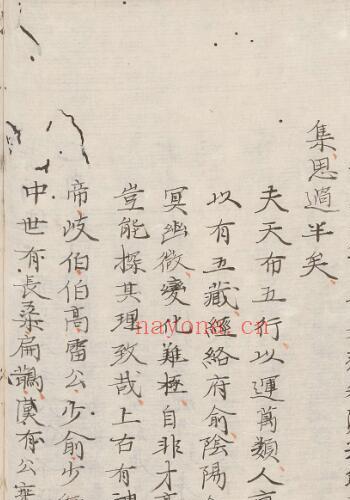 集思過半矣
夫天布五行以運萬類人
以有五藏經絡府俞陰陽
冥幽微變化難極自非才
豈能探其理致哉上古有神
帝岐伯伯高雷公少俞少
中世有長桑扁鵲漢有公
nayona.cn